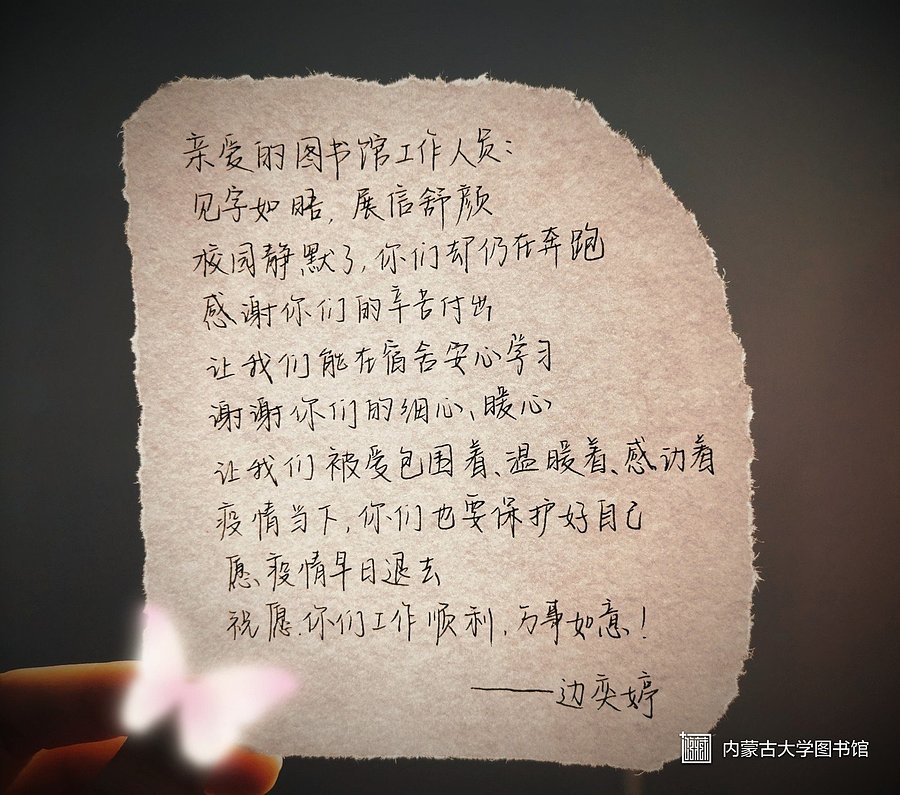 亲爱的图书馆工作人员：
见字如晤，展信舒颜
校园静默了，你们却仍在奔跑
感谢你们的辛苦付出
让我们能在宿舍安心学习
谢谢你们的细心、暖心
让我们被爱包围着、温暖着、感动着
疫情当下，你们也要保护好自己
愿疫情早日退去
祝愿你们工作顺利，万事如意！
——边奕婷
内蒙古大学图书馆